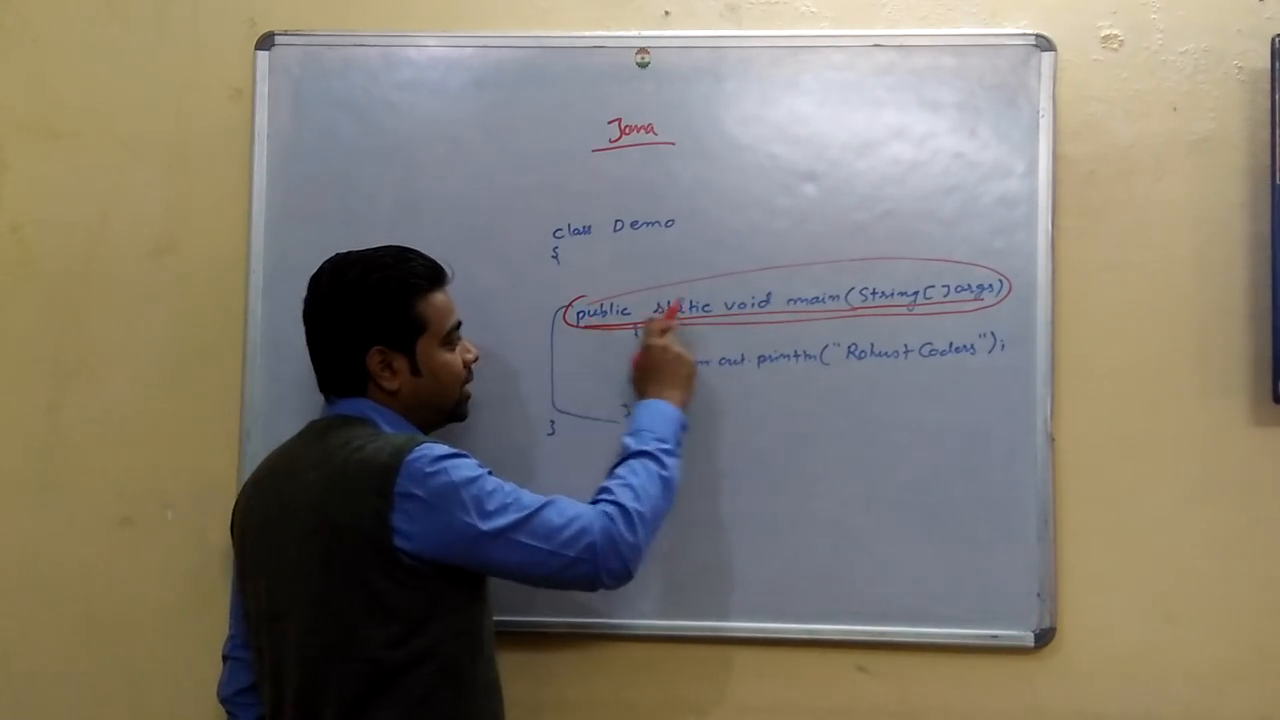 Java
class Demo
{
public static void main(String[]args)
{
out.println("Robust Coders");
}
}